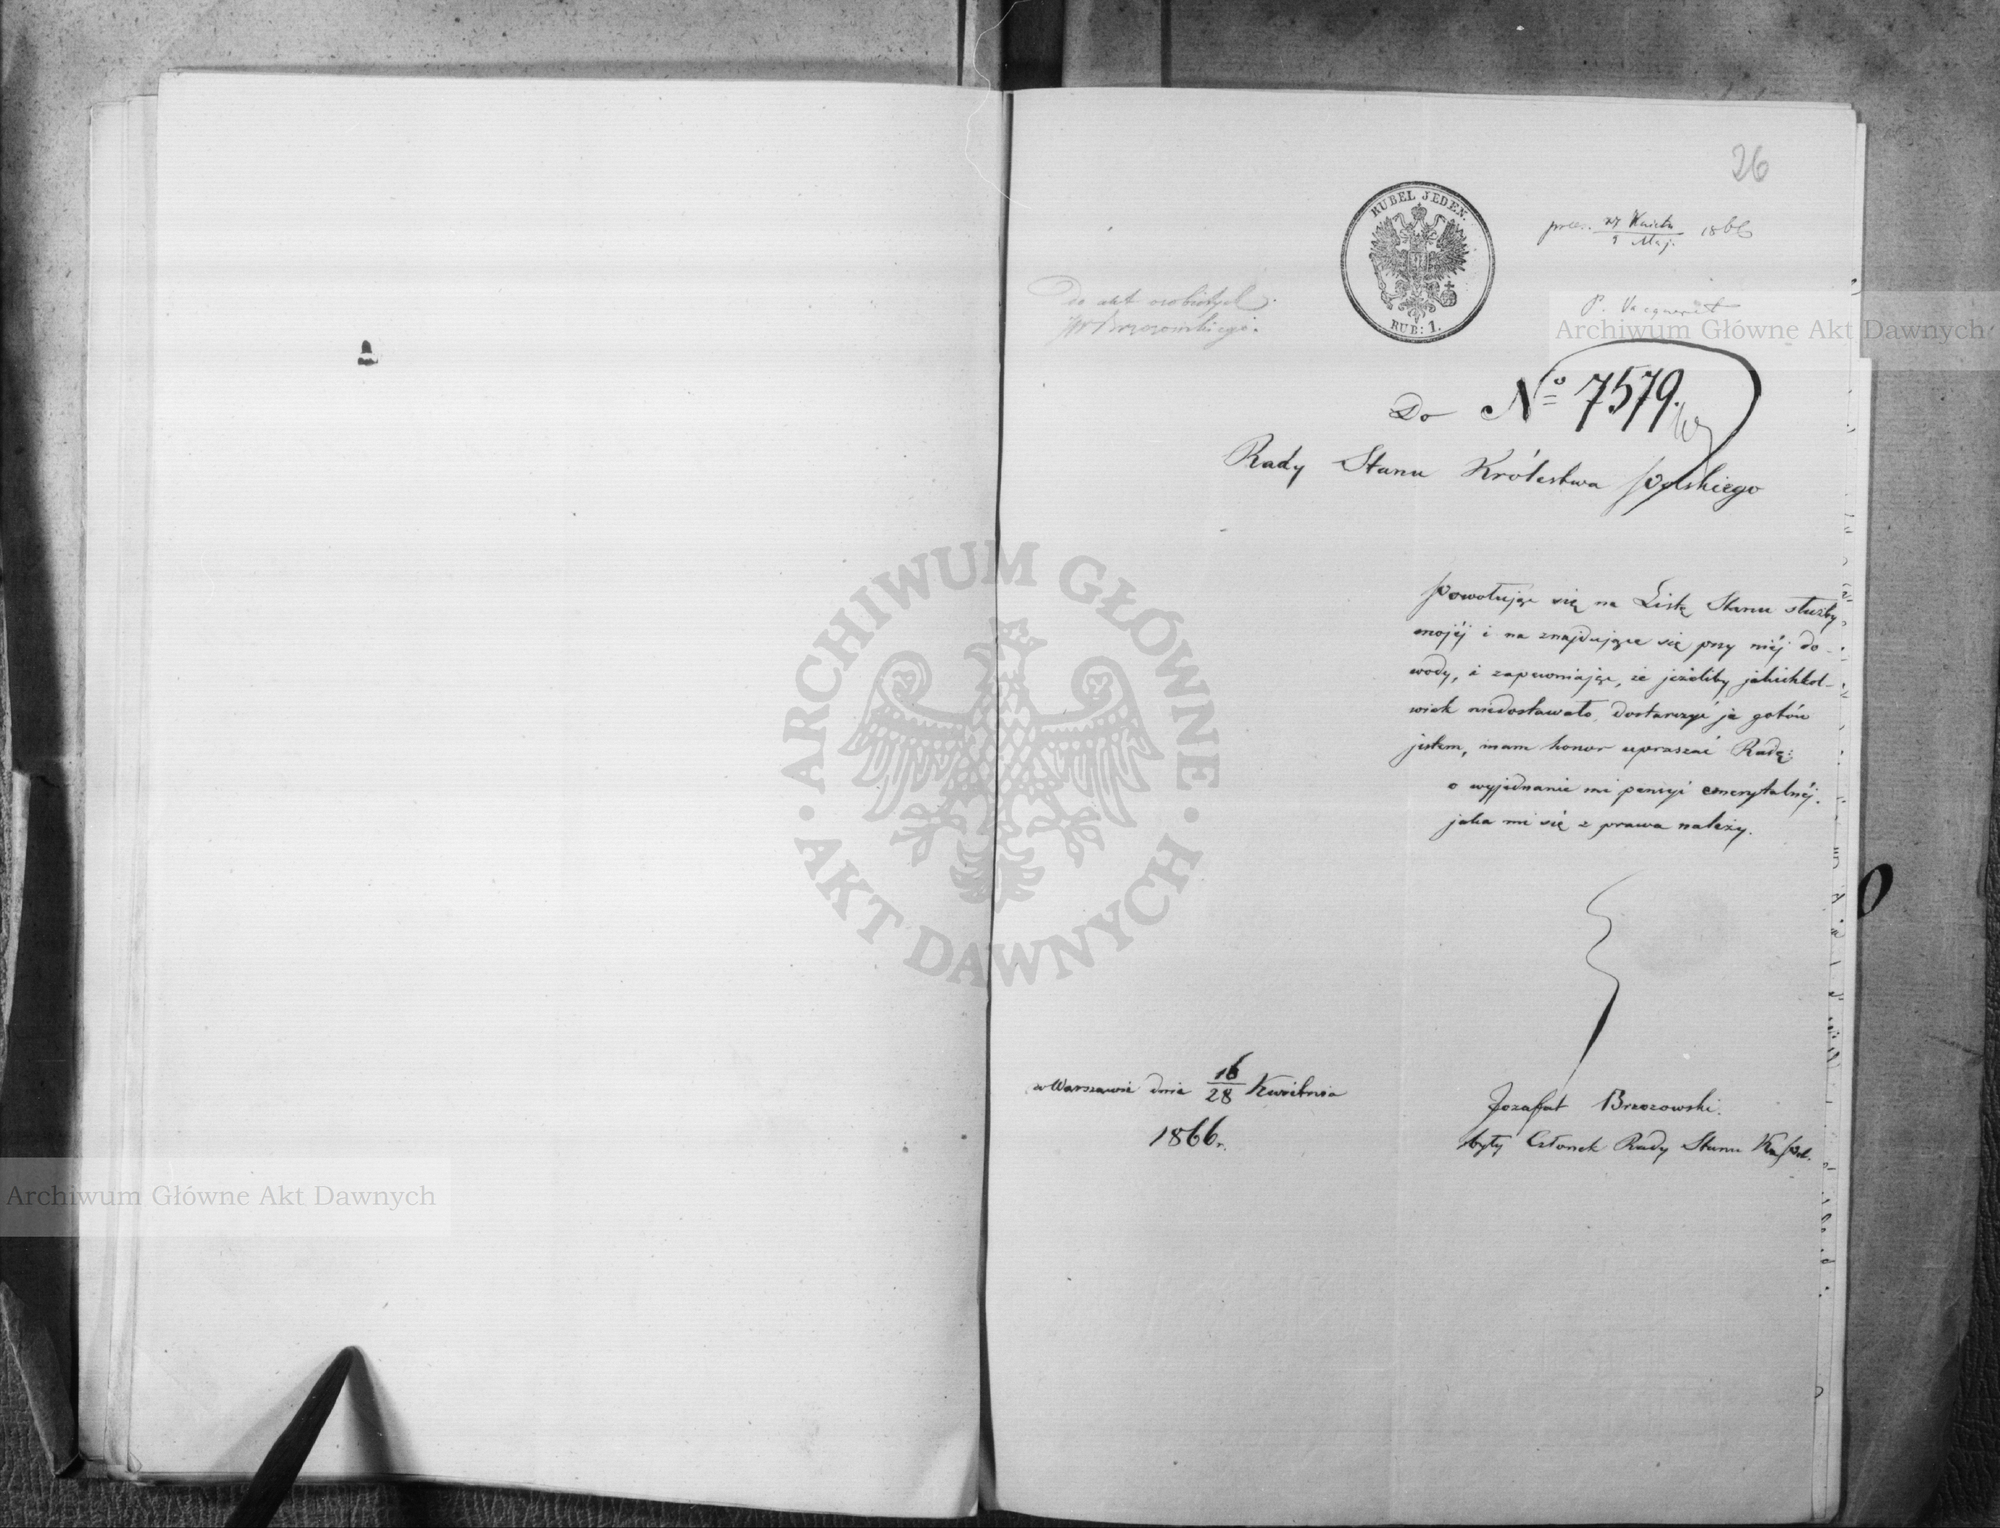 26
RUBEL JEDEN.
RUB: 1.
prez. 27 Kwietn 1866
9 Maj.
Do akt osobistych
Brzozowskiego.
P.
Archiwum Główne Akt Dawnych
Do No 7579.
Rady Stanu Królestwa Polskiego
Powołując się na Listę Stanu służby
mojéj i na znajdujące się przy niéj do-
wody, i zapewniając, że jeżeliby jakichkol-
wiek niedostawało, dostarczyć je gotów
jestem, mam honor upraszać Radę:
o wyjednanie mi pensyi emerytalnéj,
jaka mi się z prawa należy.
ARCHIWUM GŁÓWNE
AKT DAWNYCH
w Warszawie dnia 16/28 Kwietnia
1866 r.
Jozafat Brzozowski.
były Członek Rady Stanu Kr. Pol.
Archiwum Główne Akt Dawnych